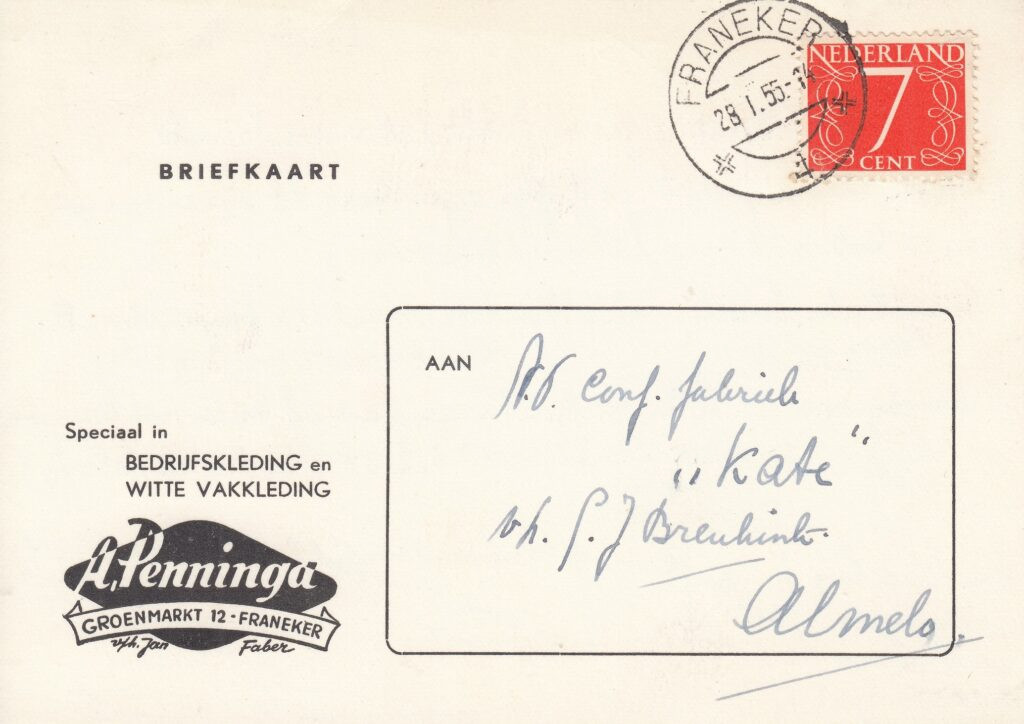 FRANEKER
28.1.55.-14
NEDERLAND
7
CENT
BRIEFKAART
AAN
Conf. fabriek
"Kate"
v.h. G. J. Breukink.
Almelo.
Speciaal in
BEDRIJFSKLEDING en
WITTE VAKKLEDING
A. Penninga
GROENMARKT 12 - FRANEKER
v/h. Jan Faber